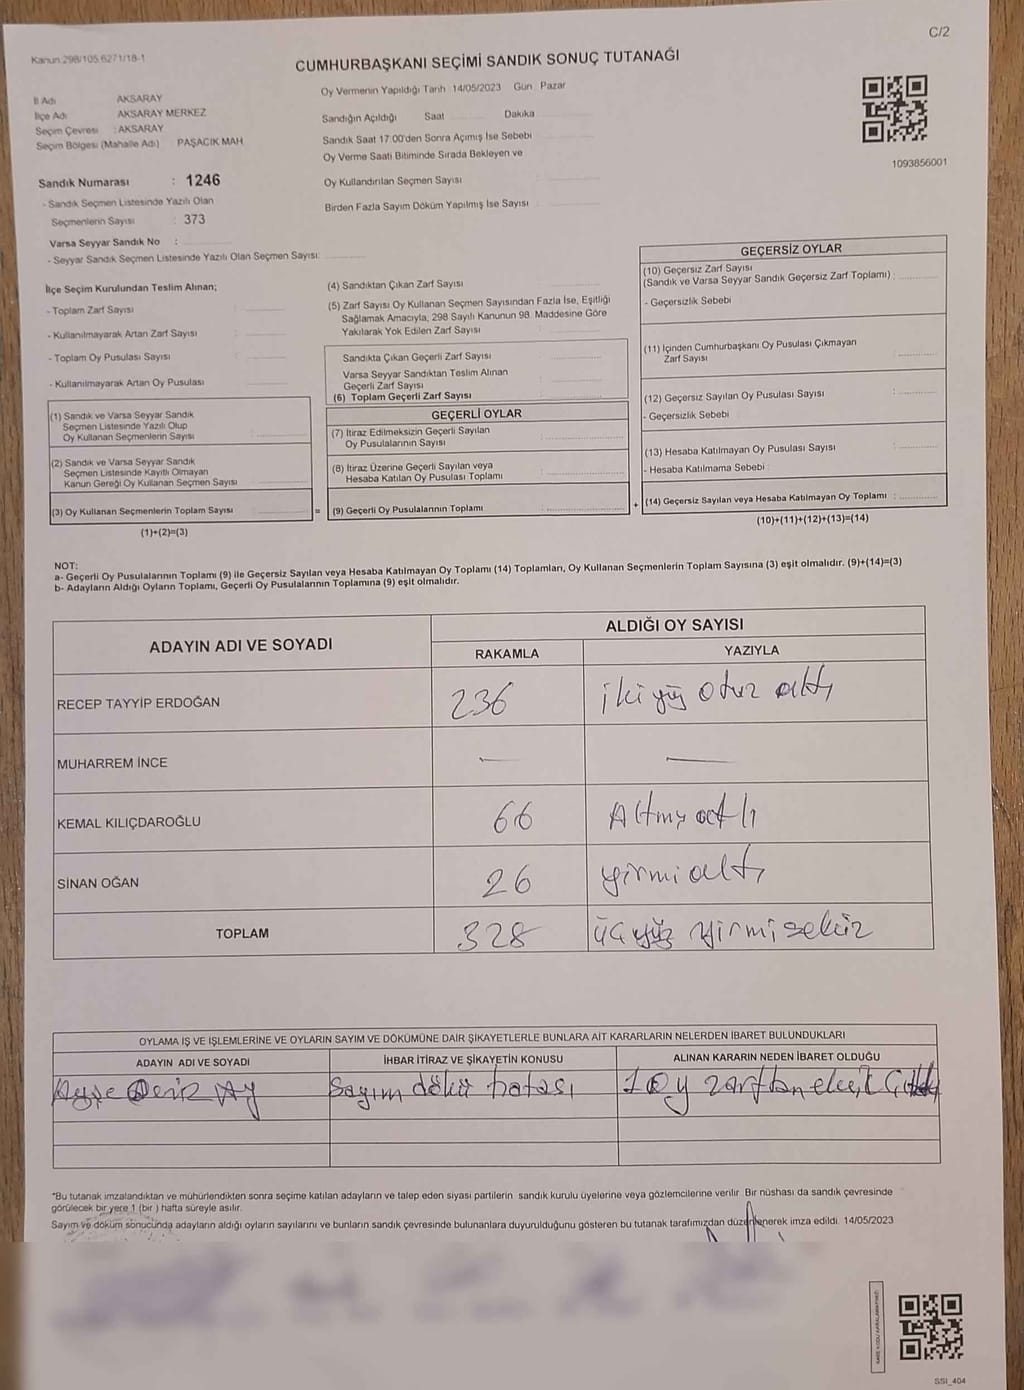 C/2
Kanun:298/105 6271/18-1
CUMHURBAŞKANI SEÇİMİ SANDIK SONUÇ TUTANAĞI
İl Adı AKSARAY
İlçe Adı AKSARAY MERKEZ
Seçim Çevresi : AKSARAY
Seçim Bölgesi (Mahalle Adı) PAŞACIK MAH
Sandık Numarası : 1246
- Sandık Seçmen Listesinde Yazılı Olan
Seçmenlerin Sayısı : 373
Varsa Seyyar Sandık No :
- Seyyar Sandık Seçmen Listesinde Yazılı Olan Seçmen Sayısı:
Oy Vermenin Yapıldığı Tarih 14/05/2023 Gün Pazar
Sandığın Açıldığı Saat Dakika
Sandık Saat 17:00'den Sonra Açımış İse Sebebi
Oy Verme Saati Bitiminde Sırada Bekleyen ve
Oy Kullandırılan Seçmen Sayısı :
Birden Fazla Sayım Döküm Yapılmış İse Sayısı :
1093856001
İlçe Seçim Kurulundan Teslim Alınan;
- Toplam Zarf Sayısı :
- Kullanılmayarak Artan Zarf Sayısı :
- Toplam Oy Pusulası Sayısı :
- Kullanılmayarak Artan Oy Pusulası :
(1) Sandık ve Varsa Seyyar Sandık
Seçmen Listesinde Yazılı Olup
Oy Kullanan Seçmenlerin Sayısı :
(2) Sandık ve Varsa Seyyar Sandık
Seçmen Listesinde Kayıtlı Olmayan
Kanun Gereği Oy Kullanan Seçmen Sayısı :
(3) Oy Kullanan Seçmenlerin Toplam Sayısı :
(1)+(2)=(3)
(4) Sandıktan Çıkan Zarf Sayısı :
(5) Zarf Sayısı Oy Kullanan Seçmen Sayısından Fazla İse, Eşitliği
Sağlamak Amacıyla, 298 Sayılı Kanunun 98. Maddesine Göre
Yakılarak Yok Edilen Zarf Sayısı :
Sandıkta Çıkan Geçerli Zarf Sayısı :
Varsa Seyyar Sandıktan Teslim Alınan
Geçerli Zarf Sayısı :
(6) Toplam Geçerli Zarf Sayısı :
GEÇERLİ OYLAR
(7) İtiraz Edilmeksizin Geçerli Sayılan
Oy Pusulalarının Sayısı :
(8) İtiraz Üzerine Geçerli Sayılan veya
Hesaba Katılan Oy Pusulası Toplamı :
= (9) Geçerli Oy Pusulalarının Toplamı :
GEÇERSİZ OYLAR
(10) Geçersiz Zarf Sayısı
(Sandık ve Varsa Seyyar Sandık Geçersiz Zarf Toplamı) :
- Geçersizlik Sebebi
(11) İçinden Cumhurbaşkanı Oy Pusulası Çıkmayan
Zarf Sayısı :
(12) Geçersiz Sayılan Oy Pusulası Sayısı :
- Geçersizlik Sebebi :
(13) Hesaba Katılmayan Oy Pusulası Sayısı :
- Hesaba Katılmama Sebebi :
+ (14) Geçersiz Sayılan veya Hesaba Katılmayan Oy Toplamı :
(10)+(11)+(12)+(13)=(14)
NOT:
a- Geçerli Oy Pusulalarının Toplamı (9) ile Geçersiz Sayılan veya Hesaba Katılmayan Oy Toplamı (14) Toplamları, Oy Kullanan Seçmenlerin Toplam Sayısına (3) eşit olmalıdır. (9)+(14)=(3)
b- Adayların Aldığı Oyların Toplamı, Geçerli Oy Pusulalarının Toplamına (9) eşit olmalıdır.
ADAYIN ADI VE SOYADI ALDIĞI OY SAYISI
RAKAMLA YAZIYLA
RECEP TAYYİP ERDOĞAN 236 iki yüz otuz altı
MUHARREM İNCE — —
KEMAL KILIÇDAROĞLU 66 Altmış altı
SİNAN OĞAN 26 yirmi altı
TOPLAM 328 üçyüz yirmi sekiz
OYLAMA İŞ VE İŞLEMLERİNE VE OYLARIN SAYIM VE DÖKÜMÜNE DAİR ŞİKAYETLERLE BUNLARA AİT KARARLARIN NELERDEN İBARET BULUNDUKLARI
ADAYIN ADI VE SOYADI İHBAR İTİRAZ VE ŞİKAYETİN KONUSU ALINAN KARARIN NEDEN İBARET OLDUĞU
Ayşe Deniz Ay Sayım dökü hatası 1 Oy zarftan eksik Çıktı
*Bu tutanak imzalandıktan ve mühürlendikten sonra seçime katılan adayların ve talep eden siyasi partilerin sandık kurulu üyelerine veya gözlemcilerine verilir. Bir nüshası da sandık çevresinde
görülecek bir yere 1 (bir ) hafta süreyle asılır.
Sayım ve döküm sonucunda adayların aldığı oyların sayılarını ve bunların sandık çevresinde bulunanlara duyurulduğunu gösteren bu tutanak tarafımızdan düzenlenerek imza edildi. 14/05/2023
SSI_404